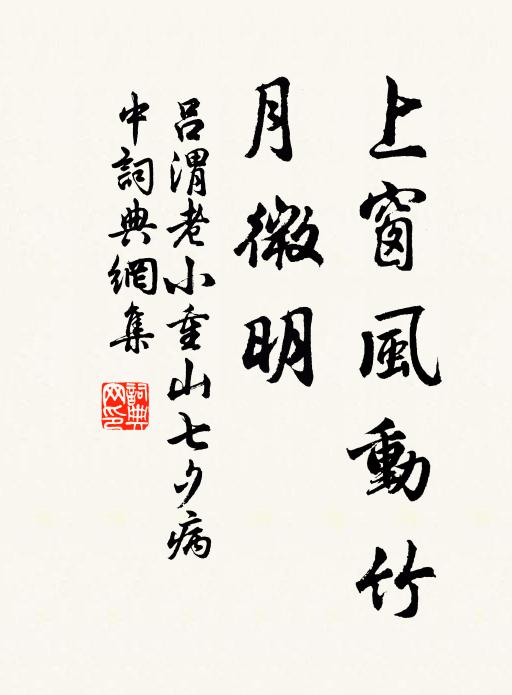 上窗風動竹
月微明
呂渭老小重山七夕病
中詞典網集
詞典網印